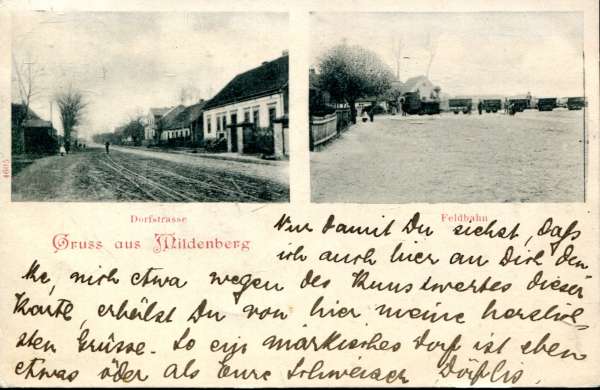 Dorfstrasse
Feldbahn
Gruss aus Mildenberg
Nur damit Du siehst, daß
ich auch hier an Dich den-
ke, nich etwa wegen des Kunstwertes dieser
Karte, erhälst Du von hier meine herzlich-
sten Grüsse. So ein märkisches Dorf ist eben
etwas öder als Eure Schweizer Dörflis.